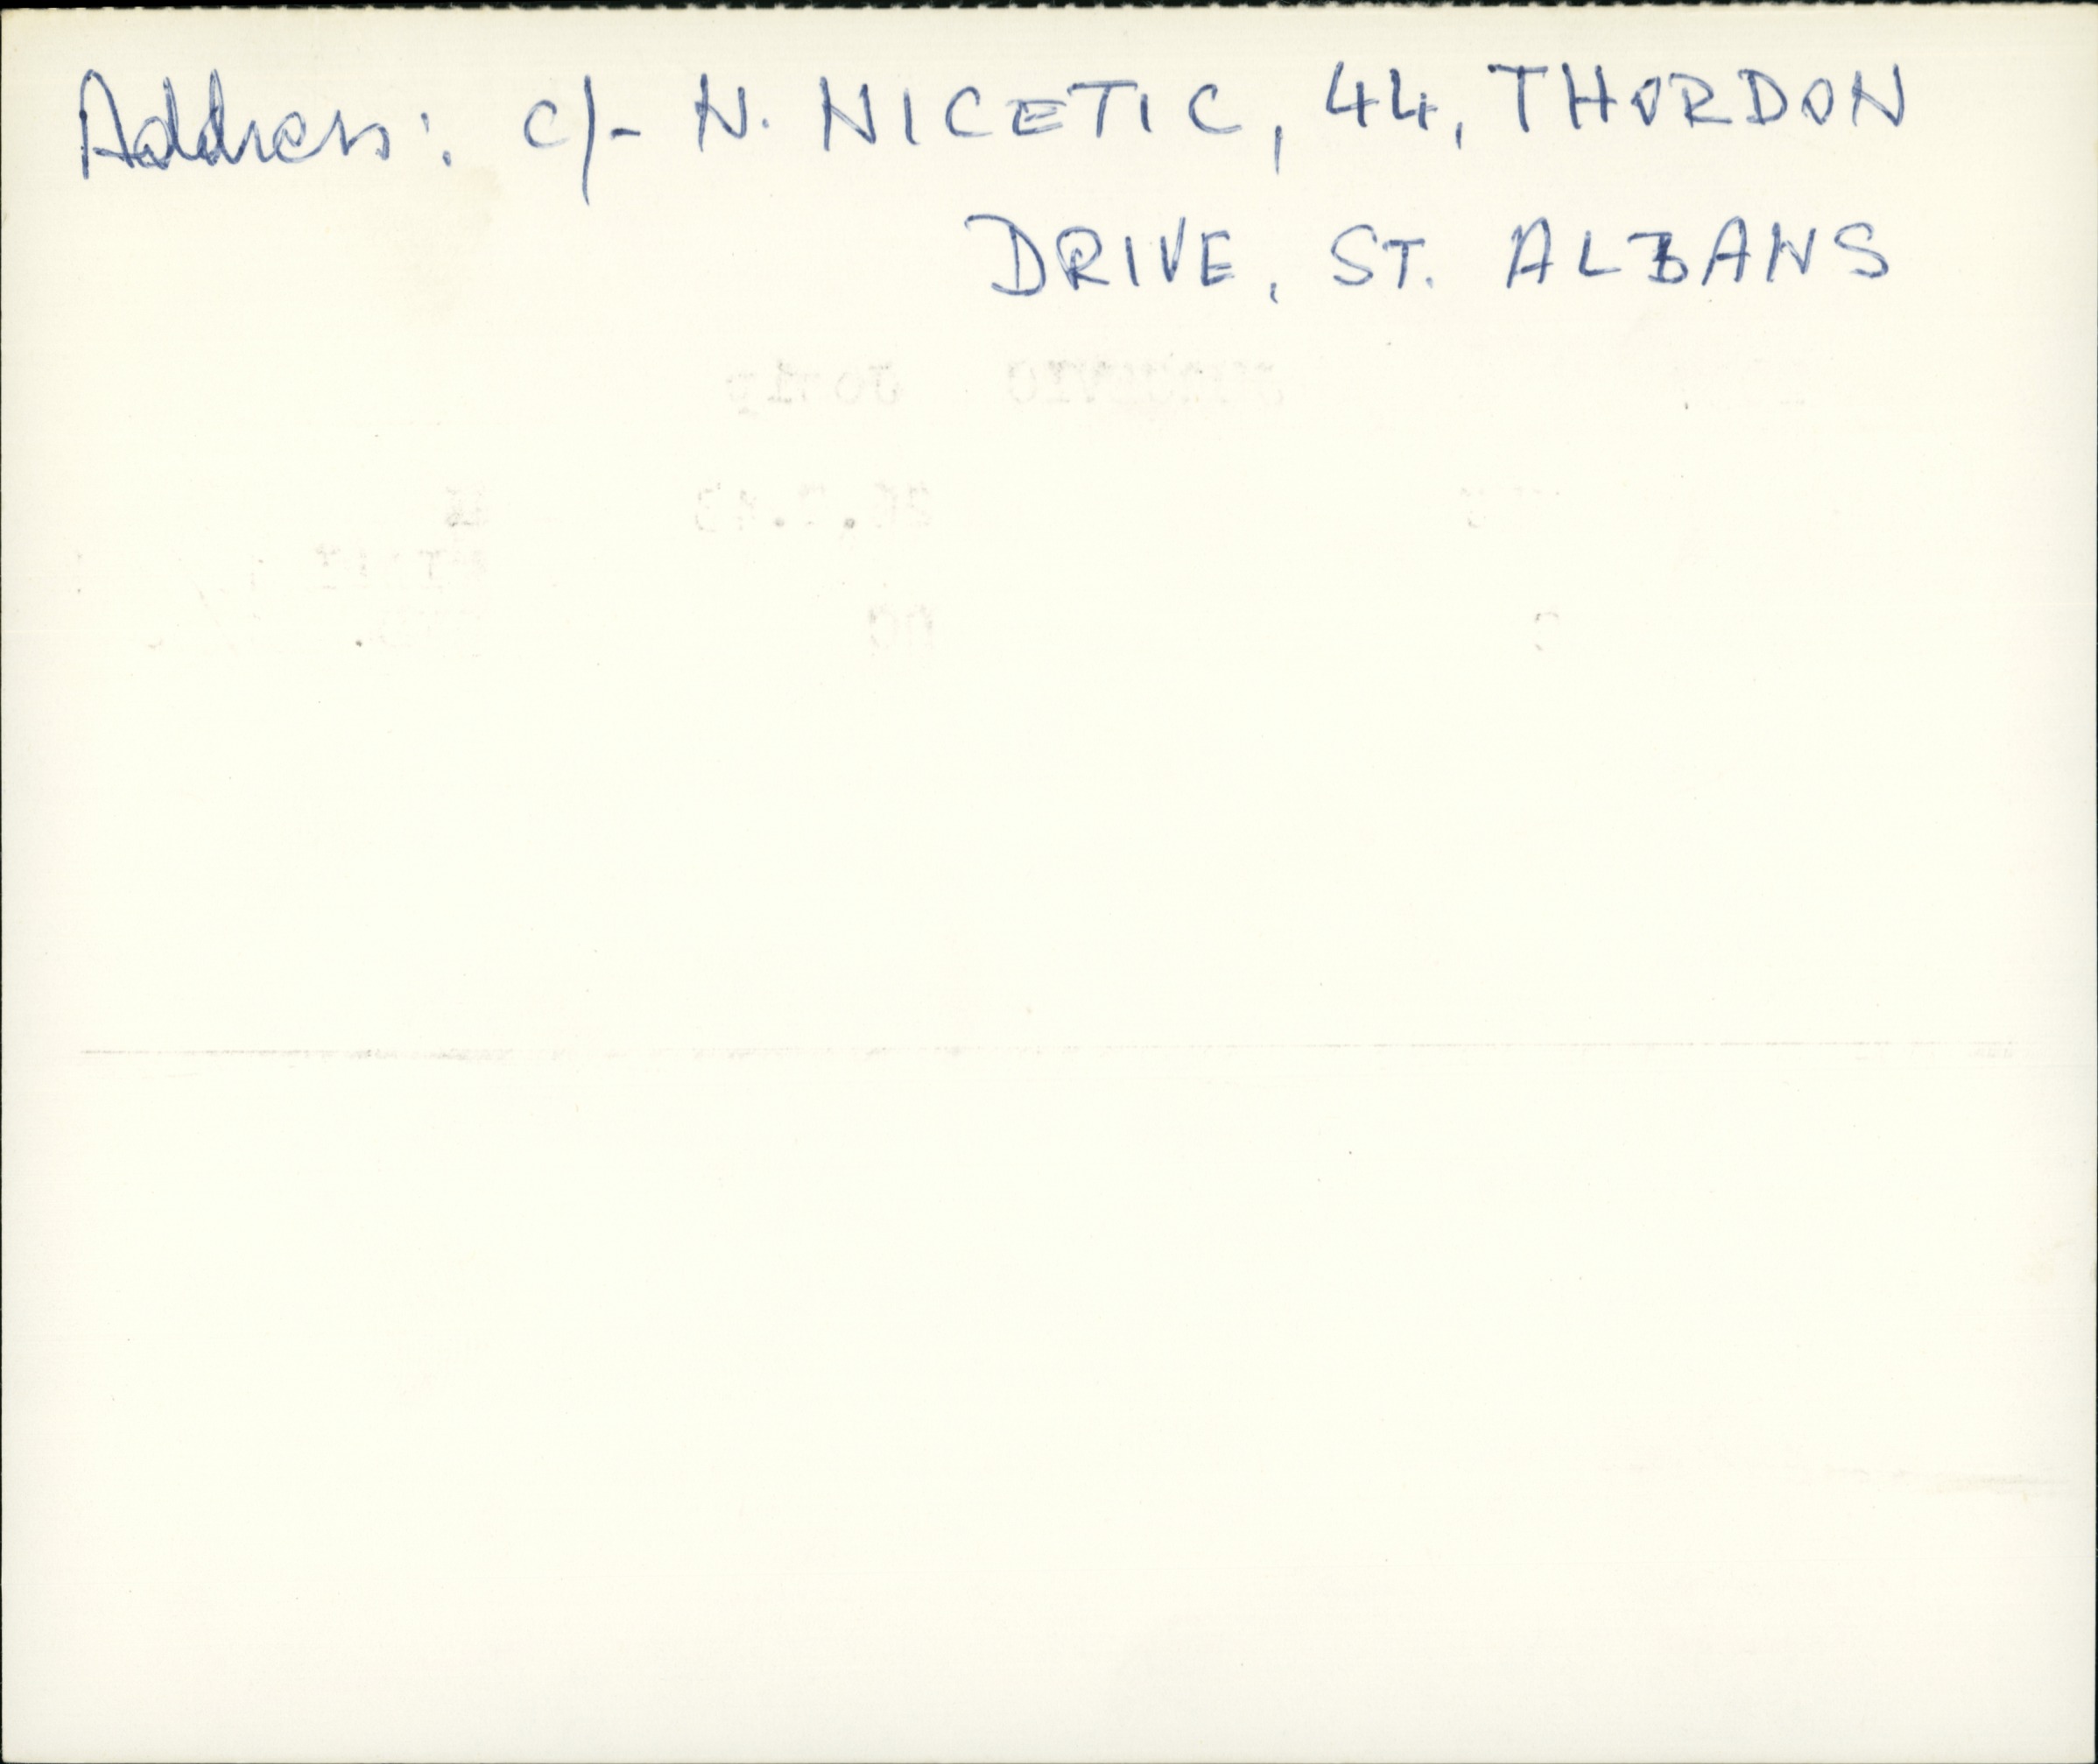 Address: c/- N. NICETIC, 44, THORDON
DRIVE, ST. ALBANS